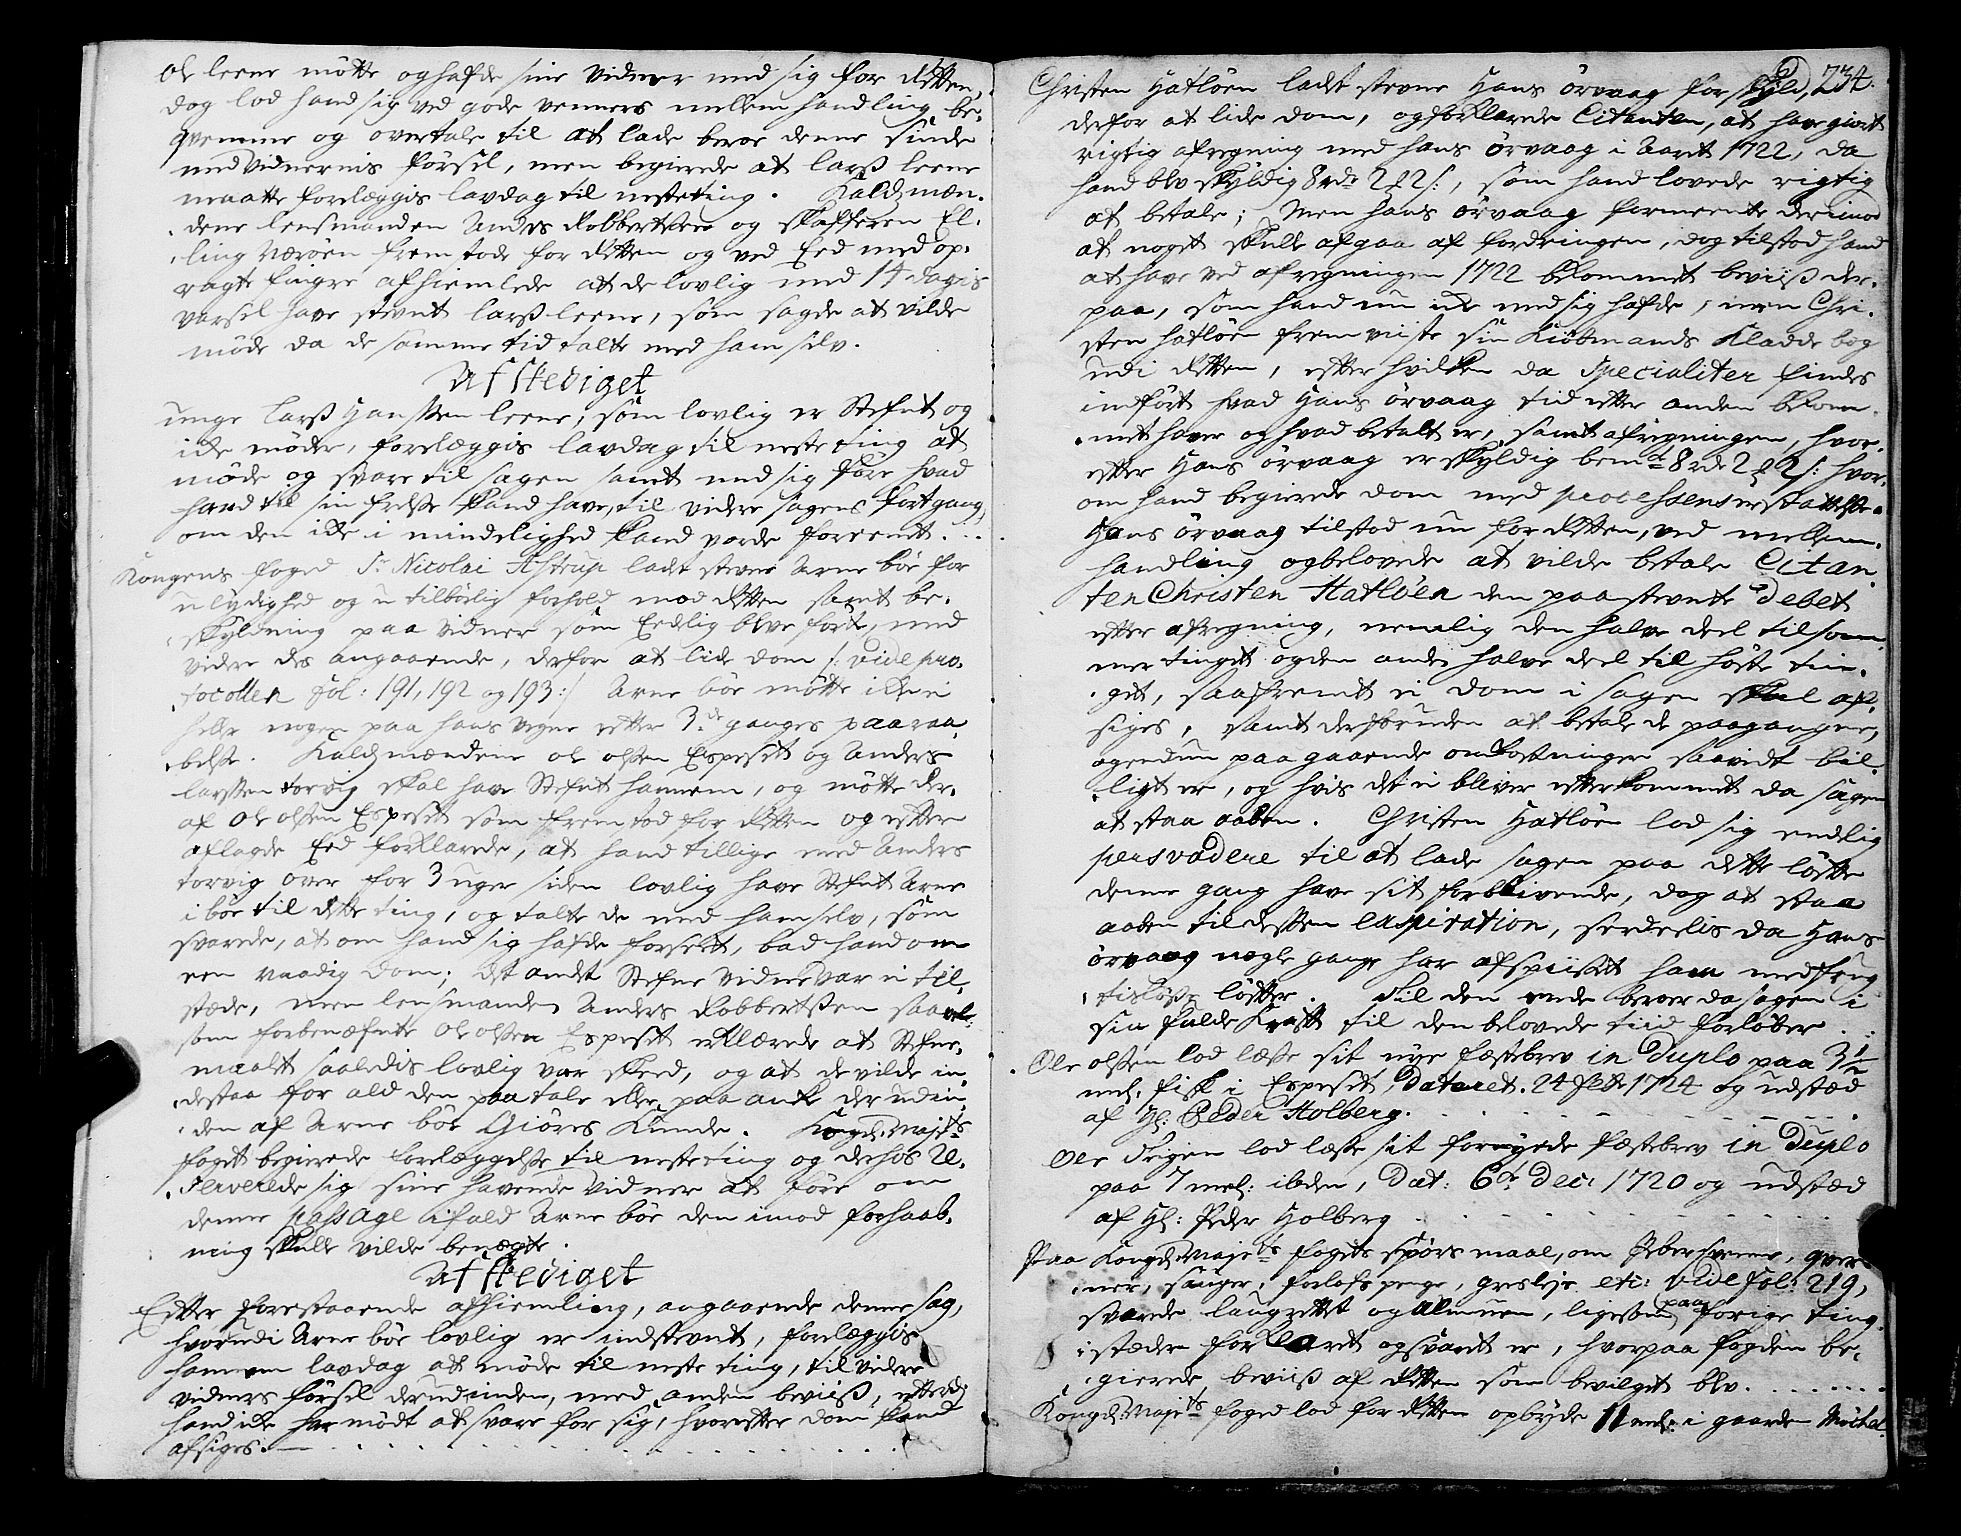 Ole leene mötte og hafde sine Vidner med sig for Retten,
dog lod hand sig ved gode venners mellem handling be-
qvemme og overtale til at lade beroe denne sinde
med Vidnernis försel, men begierede at larss leene
maatte forelæggis lavdag til neste ting. Kaldsmæn-
dene lensmanden Anders Robbertsen og skafferen El-
ling Væröen fremstode for Retten og ved Eed med op-
ragte fingre afhiemlede at de lovlig med 14 dagis
varsel have stevnt larss leene, som sagde at vilde
möde da de samme tid talte med ham selv.
Afskediget
unge larss Hanssen leene, som lovlig er Stefnt og
icke möder, forelæggis lavdag til neste ting at
möde og svare til sagen samt med sig före hvad
hand til sin frelse kand have, til videre sagens fortgang,
om den icke i mindelighed kand vorde foreenet. . .
Kongens foged Sr Nicolai Astrup lader stevne Arne böe for
ulydighed og utilbörlig forhold mod Retten samt be-
skyldning paa vidner som Eedlig blve förte, med
videre des angaaende, derfor at lide dom /: vide pro-
tocollen fol: 191, 192 og 193:/ Arne böe mötte icke ei
heller nogen paa hans vegne efter 3de ganges paaraa-
belse. Kaldsmændene Ole olsen Espeset og Anders
larssen torvig skal have Stefnt hannem, og mötte der-
af Ole olsen Espeset som fremstod for Retten og efter
aflagde Eed forklarede, at hand tillige med Anders
torvig over for 3 uger siden lovlig have Stefnt Arne
i böe til dette ting, og talte de med ham selv, som
svarede, at om hand sig hafde forseet, bad hand om
een naadig dom; det andet Stefne vidne var ei til-
stæde, men lensmanden Anders Robbertssen saavel
som forbenæfnte Ole olsen Espeset erklærede at Stefne-
maalet saaledis lovlig var skeed, og at de vilde in-
destaa for ald den paatale eller paa anke derudin-
den af Arne böe Giöres kunde. Kongl. Majts
foget begierede forelæggelse til neste ting og derhos re-
serverede sig sine havende vidner at före om
denne passage ifald Arne böe den imod forhaab-
ning skulle vilde benægte.
Afskediget
Efter forestaaende afhiemling, angaaende denne sag,
hvorudi Arne böe lovlig er indstevnt, forelæggis
hannem lavdag at möde til neste ting, til videre
vidners försel derudinden, med anden beviiss, efterdi
hand icke har mödt at svare for sig, hvorefter dom kand
afsiges. . . . . . . . . . .
234.
Christen Hatlöen ladet stevne Hans örvaag for skyld,
derfor at lide dom, og forklarede Citanten, at have giort
rigtig afregning med hans örvaag i Aaret 1722, da
hand blv skyldig 8 rdr 2 ₰ 2 /:, som hand lovede rigtig
at betale; Men hans örvaag formeente derimod
at noget skulle afgaa af fordringen, dog tilstod hand
at have ved afregningen 1722 bekommet beviiss der-
paa, som hand nu icke med sig hafde, men Chri-
sten hatlöen fremviiste sin Kiöbmands Kladde bog
udi Retten, efter hvilken da Specialiter findes
indfört hvad Hans örvaag tid efter anden bekom-
met haver og hvad betalt er, samt afregningen, hvor-
efter Hans örvaag er skyldig bemte 8 rdr 2 ₰ 2 /: hvor-
om hand begierede dom med processens erstattelse.
Hans örvaag tilstod nu for Retten, ved mellem-
handling og belovede at vilde betale Citan-
ten Christen Hatlöen den paastevnte Debet
efter afregning, nemlig den halve deel til som-
mer tinget og den anden halve deel til höste tin-
get, saafremt ei dom i sagen skal af-
siges, samt desforuden at betale de paagangne,
og endnu paagaaende omkostninger saavidt bil-
ligt er, og hvis det ei bliver efterkommet da sagen
at staa aaben. Christen Hatlöen lod sig endlig
persvadere til at lade sagen paa dette löfte
denne gang have sit forblivende, dog at staa
aaben til dessen expiration, serdeelis da Hans
örvaag nogle gange har afspiiset ham med frug-
tislöse löfter. Til den ende beroer da sagen i
sin fulde Kraft til den belovede tiid forlöber. . :
Ole olssen lod læse sit nye fæstebrev in Duplo paa 3 1/2
mel. fisk i Espeset, Dateret. 24 Febr 1724 og udstæd
af Hl: Peder Holberg. . . . . . . . .
Ole Teigen lod læse sit fornyede fæstebrev in Duplo
paa 7 mel: ibden, Dat: 6te Dec: 1720 og udstæd
af Hl: Peder Holberg . . . . . . . .
Paa Kongl. Majts fogets spörsmaal, om qver-
ner, sauger, forlofs penge, gresleje etc: vide fol: 219,
svarede laugrettet og Almuen, ligesom paa forige ting-
stæder forklaret og svaret er, hvorpaa fogden be-
gierede beviiss af Retten som bevilget blv. . . . . . .
Kongl. Majts foged lod for Retten opbyde 11 mel: i gaarden Möchal-